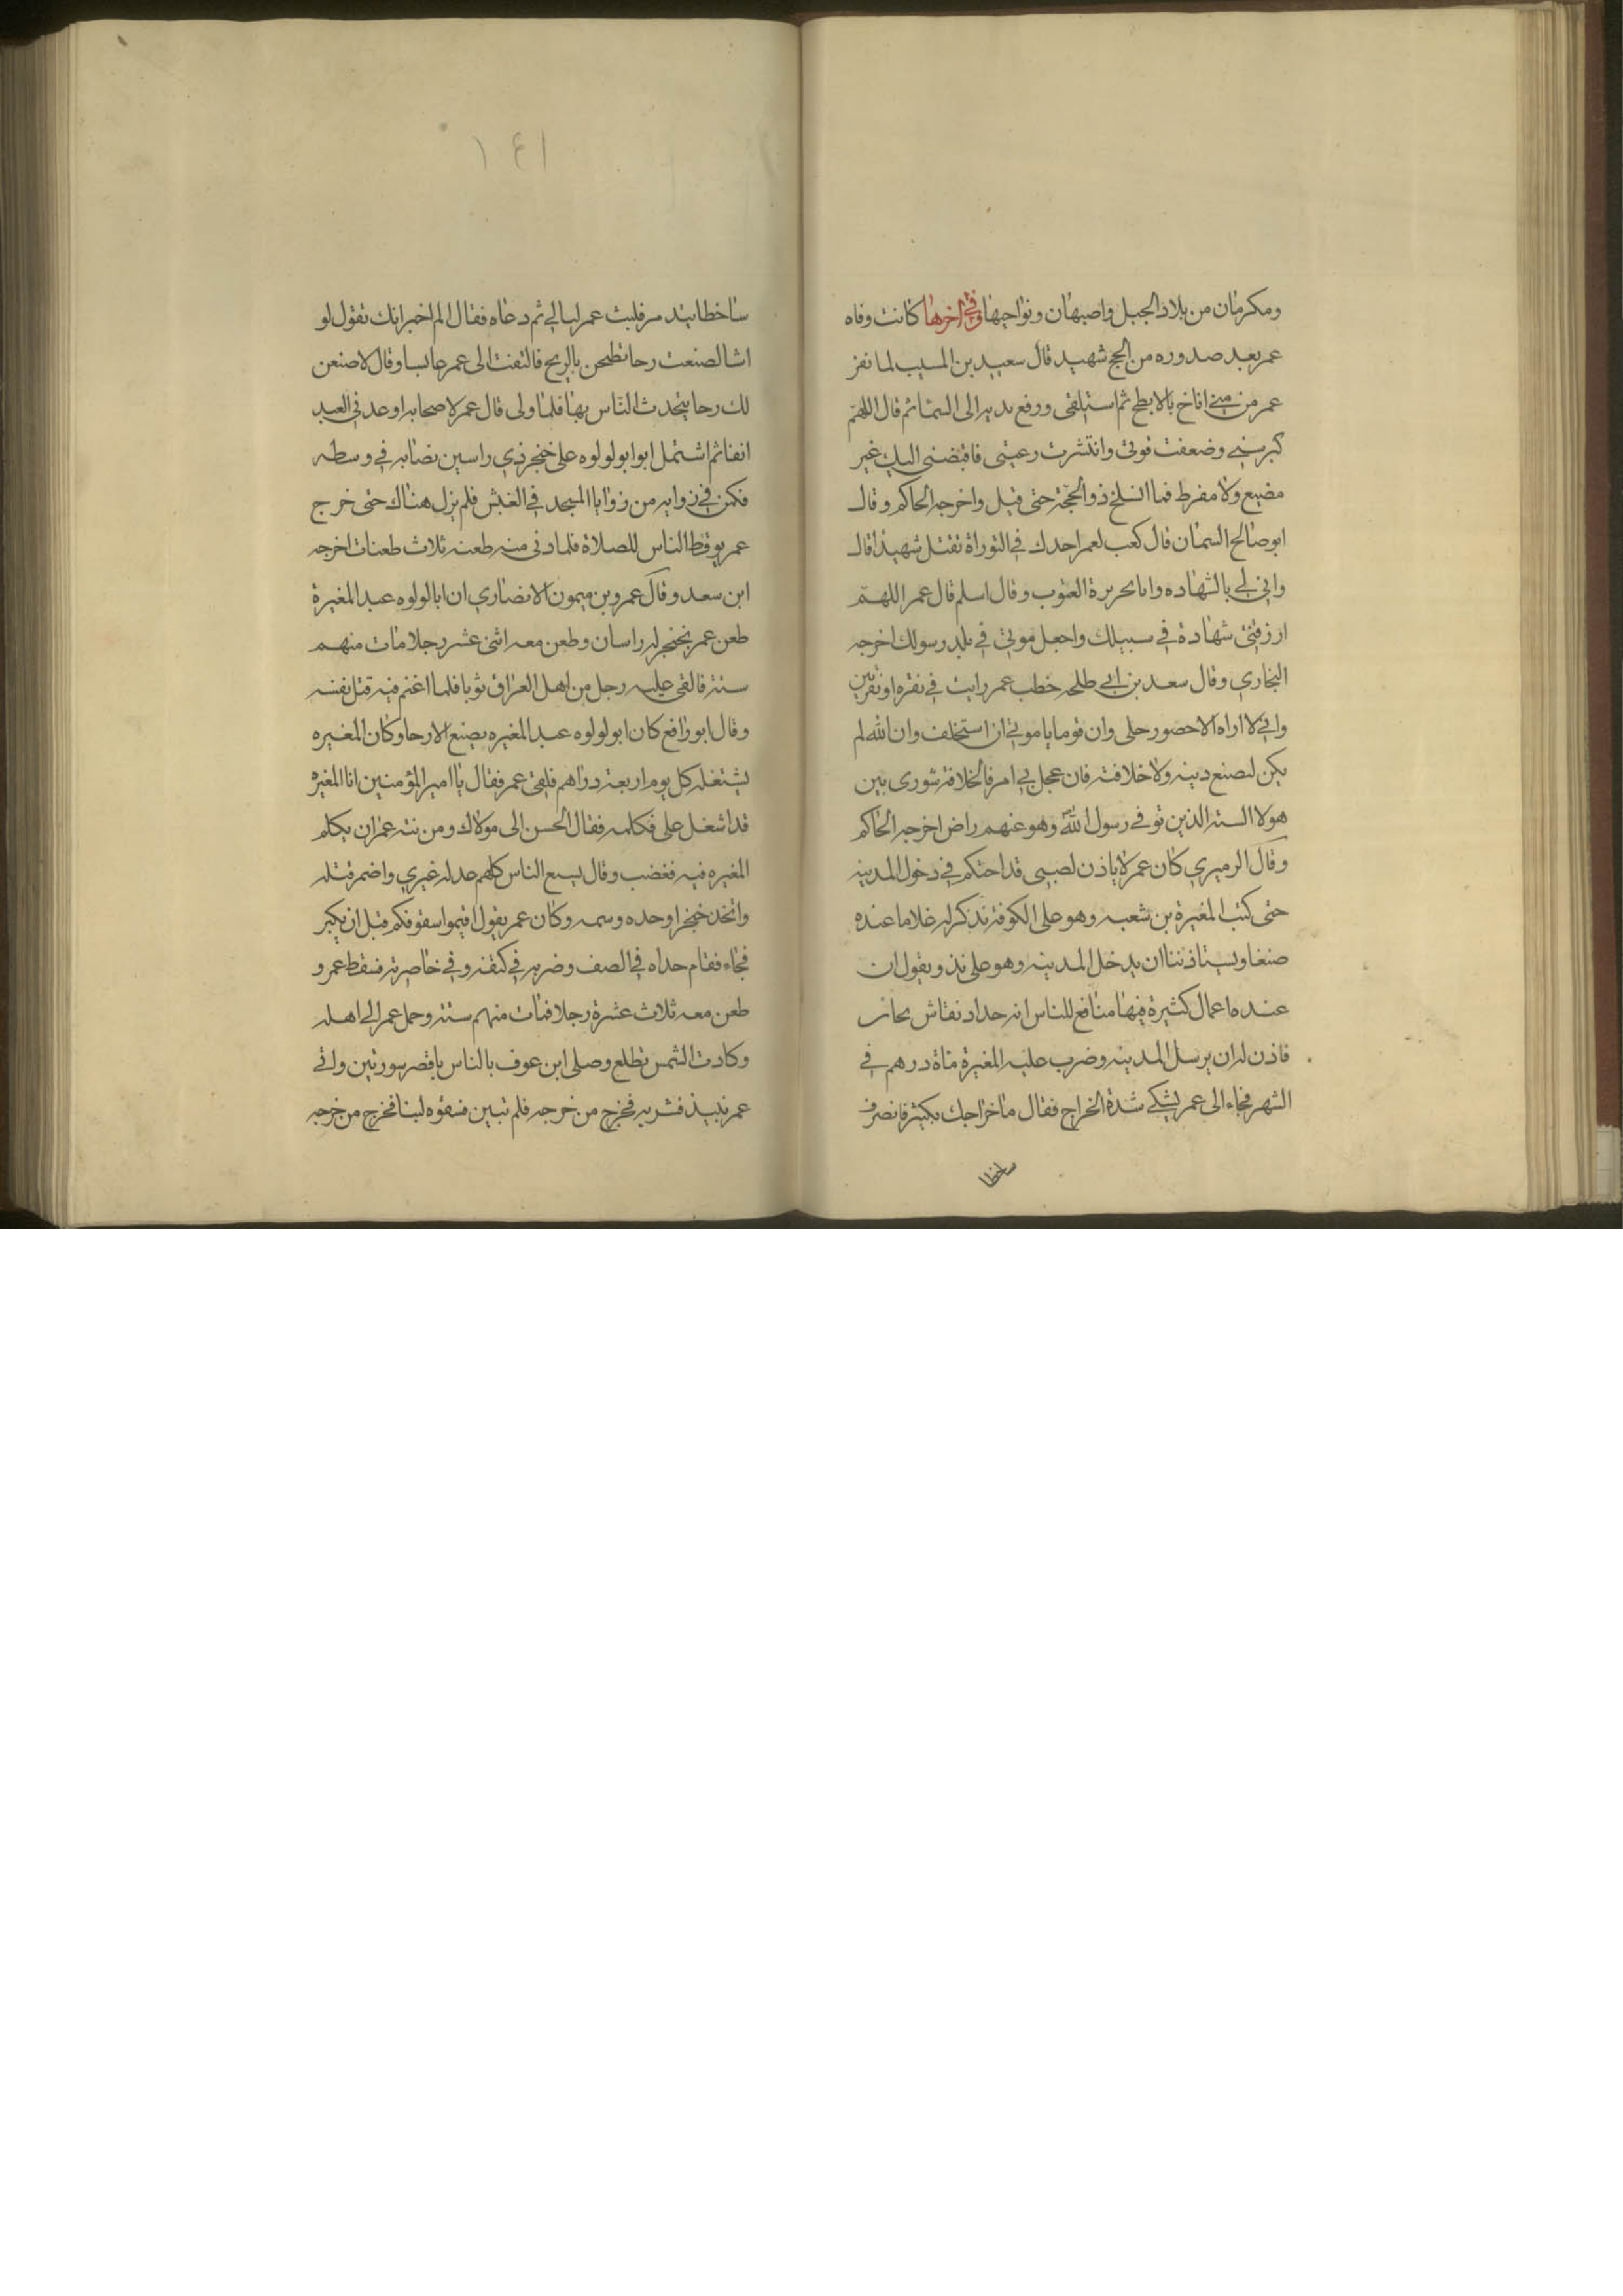 ومكرمان من بلاد الجبل واصبهان ونواحيها وفي اخرها كانت وفاه
عمر بعد صدوره من الحج شهيد قال سعيد بن المسيب لما نفر
عمر من منى اناخ بالابطح ثم استلقى ورفع يديه الى السما ثم قال اللهم
كبر سني وضعفت قوتي وانتشرت رعيتي فاقبضني اليك غير
مضيع ولا مفرط فما انسلخ ذو الحجة حتى قتل واخرجه الحاكم وقال
ابو صالح السمان قال كعب لعمر اجدك في التوراة تقتل شهيدا قال
واني لي بالشهاده وانا بجزيرة العرب وقال اسلم قال عمر اللهم
ارزقني شهادة في سبيلك واجعل موتي في بلد رسولك اخرجه
البخاري وقال سعد بن ابي طلحه خطب عمر رايت في نقره او نقرتين
واني لا اراه الا حضور حلى وان قوما يامروني ان استخلف وان الله لم
يكن ليضيع دينه ولا خلافته فان عجل بي امر فالخلافة شورى بين
هولا الستة الذين توفي رسول الله وهو عنهم راض اخرجه الحاكم
وقال الزهيري كان عمر لا ياذن لصبي قد احتكم في دخول المدينه
حتى كتب المغيرة بن شعبه وهو على الكوفة يذكر له غلاما عنده
صنعا ويستاذننا ان يدخل المدينه وهو على ند ويقول ان
عنده اعمال كثيرة فيها منافع للناس انه حداد نقاش نجار
فاذن له ان يرسل المدينه وضرب عليه المغيرة ماة درهم في
الشهر فجاء الى عمر يشكي شدة الخراج فقال ما خراجك بكثير فانصرف
ساخطا
ساخطا يتدمر فلبث عمر ليالي ثم دعاه فقال الم اخبر انك تقول لو
اشا لصنعت رحا تطحن بالريح فالتفت الى عمر عابسا وقال لاصنعن
لك رحا يتحدث الناس بها فلما ولى قال عمر لاصحابه اوعدني العبد
انفا ثم اشتمل ابو ابو لولوه على خنجر ذي راسين نصابه في وسطه
فكمن في زوايه من زوايا المسجد في الغبش فلم يزل هناك حتى خرج
عمر يوقظ الناس للصلاة فلما دنى منه طعنه ثلاث طعنات اخرجه
ابن سعد وقال عمرو بن ميمون الانصاري ان ابا لولوه عبد المغيرة
طعن عمر بخنجر له راسان وطعن معه اثنى عشر رجلا مات منهم
ستة فالقى عليه رجل من اهل العراق ثوبا فلما اغتم فيه قتل نفسه
وقال ابو رافع كان ابو لولوه عبد المغيره يصنع الارحا وكان المغيره
يشتغله كل يوم اربعة دراهم فلقي عمر فقال يا امير المؤمنين ان المغيرة
قد اشغل علي فكلمه فقال احسن الى مولاك ومن نية عمر ان يكلم
المغيره فيه فغضب وقال يسع الناس كلهم عدله غيري واضمر قتله
واتخذ خنجرا وحده وسمه وكان عمر يقول اقيموا صفوفكم قبل ان يكبر
فجاء فقام حداه في الصف وضربه في كتفه وفي خاصرته فسقط عمر و
طعن معه ثلاث عشرة رجلا فمات منهم ستة وحمل عمر الى اهله
وكادت الشمس تطلع وصلى ابن عوف بالناس باقصر سورتين واتي
عمر نبيذ فشربه فخرج من جرحه فلم تبين فسقوه لبنا فخرج من جرحه
١٤١